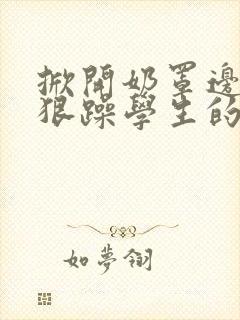 掀開奶罩邊
狠躁學生的
如夢翎